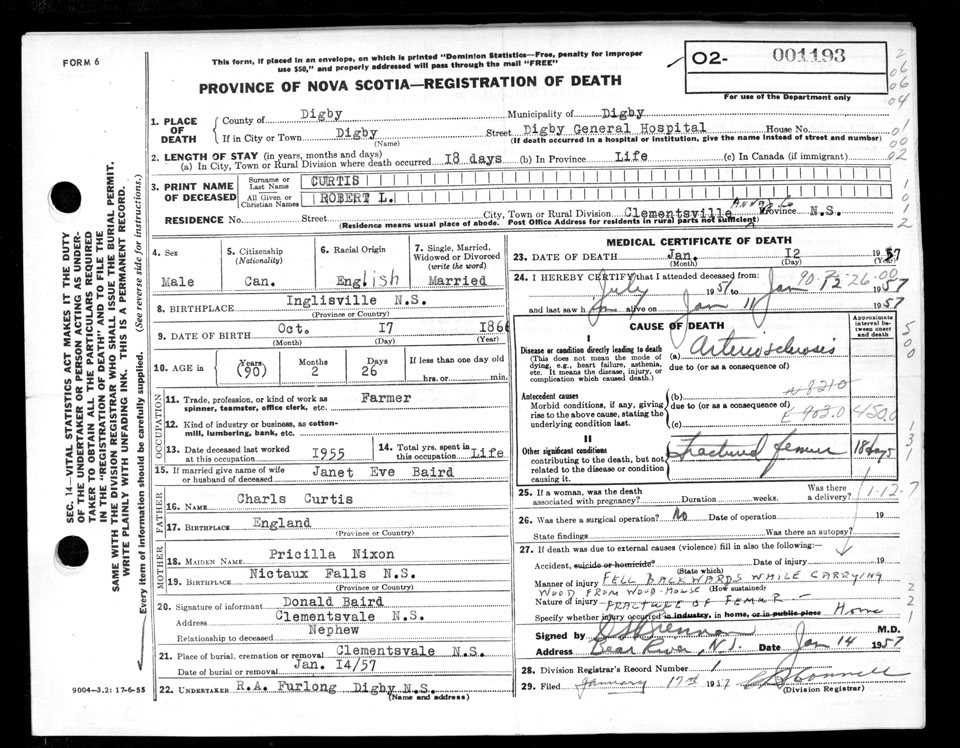 FORM 6
This form, if placed in an envelope, on which is printed "Dominion Statistics—Free, penalty for improper
use $50," and properly addressed will pass through the mail "FREE"
O2- 001193
For use of the Department only
PROVINCE OF NOVA SCOTIA—REGISTRATION OF DEATH
1. PLACE OF DEATH
County of Digby Municipality of Digby
If in City or Town Digby Street Digby General Hospital House No.
(Name) (If death occurred in a hospital or institution, give the name instead of street and number)
2. LENGTH OF STAY (in years, months and days)
(a) In City, Town or Rural Division where death occurred 18 days (b) In Province Life (c) In Canada (if immigrant)
3. PRINT NAME OF DECEASED
Surname or Last Name CURTIS
All Given or Christian Names ROBERT L.
RESIDENCE No. Street City, Town or Rural Division Clementsville Annap Co Province N.S.
(Residence means usual place of abode. Post Office Address for residents in rural parts not sufficient)
4. Sex
Male
5. Citizenship (Nationality)
Can.
6. Racial Origin
English
7. Single, Married, Widowed or Divorced (write the word)
Married
8. BIRTHPLACE Inglisville N.S.
(Province or Country)
9. DATE OF BIRTH Oct. 17 1866
(Month) (Day) (Year)
10. AGE in Years (90) Months 2 Days 26 If less than one day old
hrs. or min.
OCCUPATION
11. Trade, profession, or kind of work as Farmer
spinner, teamster, office clerk, etc.
12. Kind of industry or business, as cotton-
mill, lumbering, bank, etc.
13. Date deceased last worked at this occupation 1955
14. Total yrs. spent in this occupation Life
15. If married give name of wife or husband of deceased Janet Eve Baird
FATHER
16. NAME Charls Curtis
17. BIRTHPLACE England
(Province or Country)
MOTHER
18. MAIDEN NAME Pricilla Nixon
19. BIRTHPLACE Nictaux Falls N.S.
(Province or Country)
20. Signature of informant Donald Baird
Address Clementsvale N.S.
Relationship to deceased Nephew
21. Place of burial, cremation or removal Clementsvale N.S.
Date of burial or removal Jan. 14/57
22. UNDERTAKER R.A. Furlong Digby N.S.
(Name and address)
9004—3.2: 17-6-55
SEC. 14—VITAL STATISTICS ACT MAKES IT THE DUTY
OF THE UNDERTAKER OR PERSON ACTING AS UNDER-
TAKER TO OBTAIN ALL THE PARTICULARS REQUIRED
IN THE "REGISTRATION OF DEATH" AND TO FILE THE
SAME WITH THE DIVISION REGISTRAR WHO SHALL ISSUE THE BURIAL PERMIT.
WRITE PLAINLY WITH UNFADING INK. THIS IS A PERMANENT RECORD.
Every item of information should be carefully supplied. (See reverse side for instructions.)
MEDICAL CERTIFICATE OF DEATH
23. DATE OF DEATH Jan. 12 1957
(Month) (Day) (Year)
24. I HEREBY CERTIFY that I attended deceased from:
July 1957 to Jan 90-P2 26-00
and last saw him alive on Jan 11 1957
CAUSE OF DEATH
Approximate interval between onset and death
I
Disease or condition directly leading to death
(This does not mean the mode of dying, e.g., heart failure, asthenia, etc. It means the disease, injury, or complication which caused death.)
(a) Arteriosclerosis
due to (or as a consequence of)
Antecedent causes
Morbid conditions, if any, giving rise to the above cause, stating the underlying condition last.
(b) N 8210
due to (or as a consequence of)
E 903.0 450.0
(c)
II
Other significant conditions
contributing to the death, but not related to the disease or condition causing it.
Fractured femur 18 days
25. If a woman, was the death associated with pregnancy? Duration weeks. Was there a delivery?
1-12-7
26. Was there a surgical operation? No Date of operation 19
State findings Was there an autopsy?
27. If death was due to external causes (violence) fill in also the following:—
Accident, suicide or homicide? Date of injury 19
(State which)
Manner of injury FELL BACKWARDS WHILE CARRYING
WOOD FROM WOOD-HOUSE (How sustained)
Nature of injury FRACTURE OF FEMUR —
Specify whether injury occurred in industry, in home, or in public place Home
Signed by M.D.
Address Bear River, N.S. Date Jan 14 1957
28. Division Registrar's Record Number 1
29. Filed January 17th 1957
(Division Registrar)